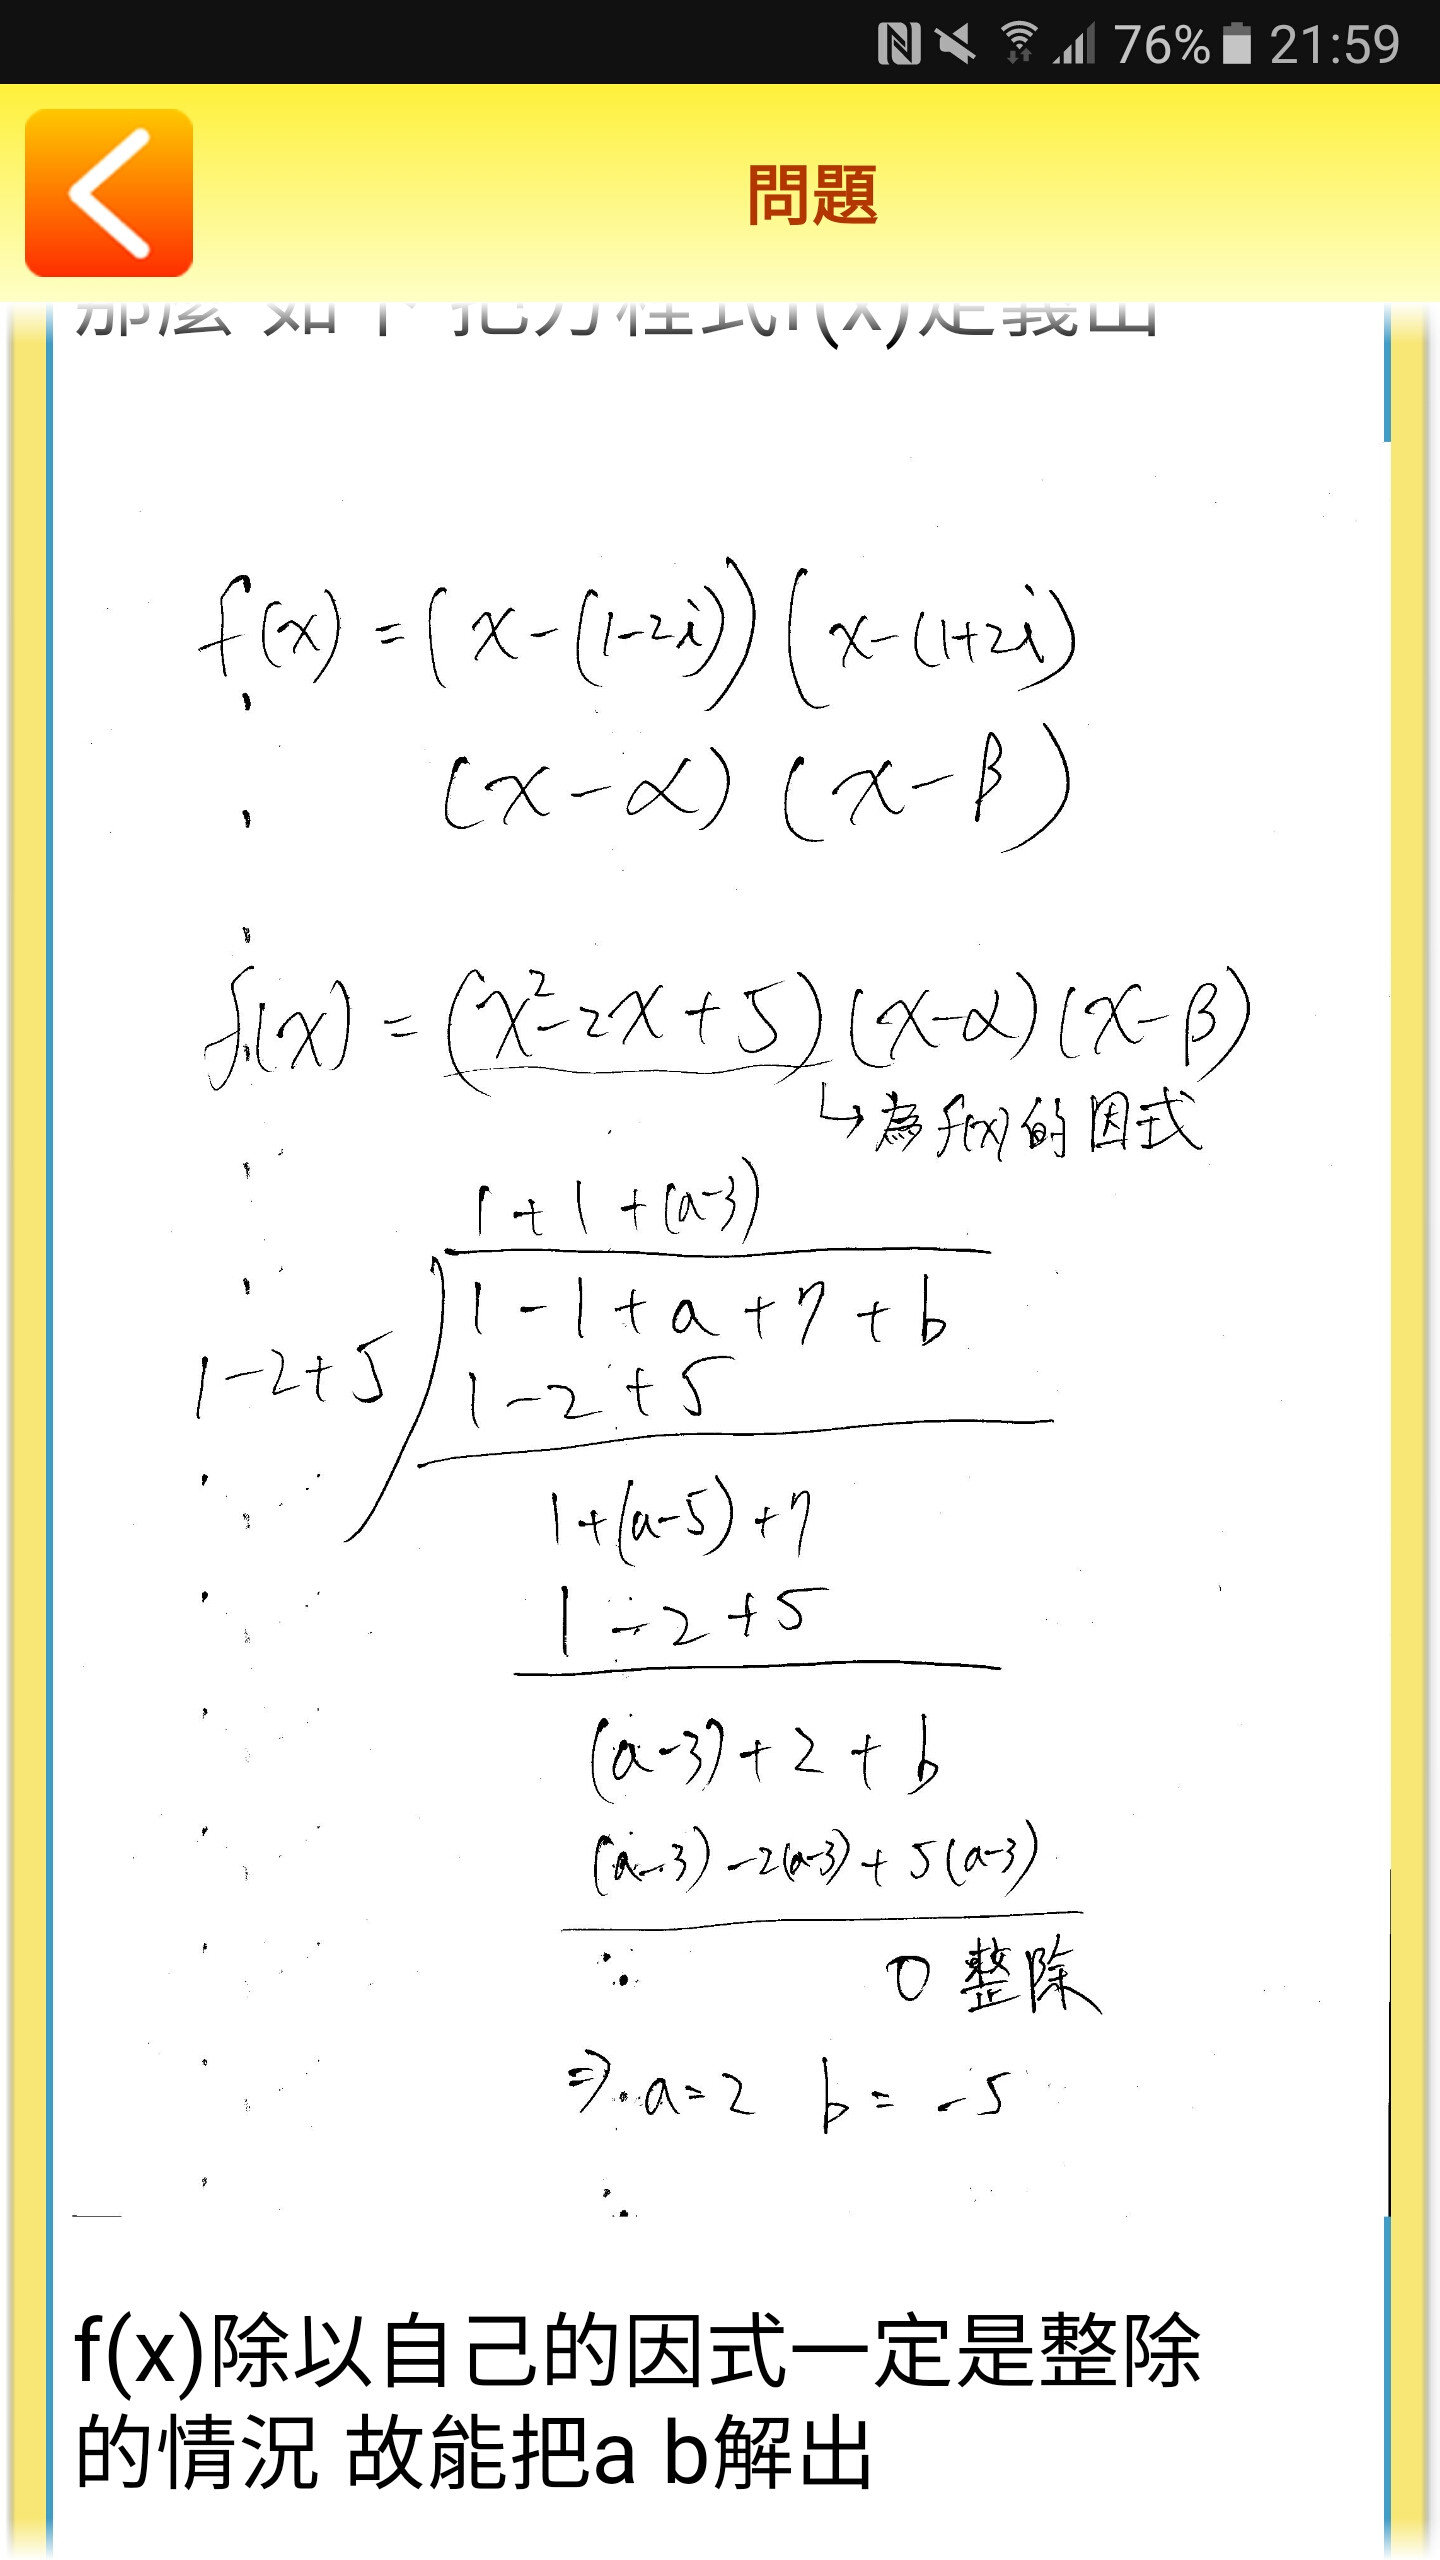 76% 21:59
問題
那麼 如下 把方程式f(x)定義出
f(x) = (x-(1-2i))(x-(1+2i)
(x-α)(x-β)
f(x) = (x²-2x+5)(x-α)(x-β)
↳為f(x)的因式
1+1+(a-3)
1-1+a+7+b
1-2+5
1-2+5
1+(a-5)+7
1-2+5
(a-3)+2+b
(a-3)-2(a-3)+5(a-3)
0 整除
⇒ a=2 b=-5
f(x)除以自己的因式一定是整除
的情況 故能把a b解出